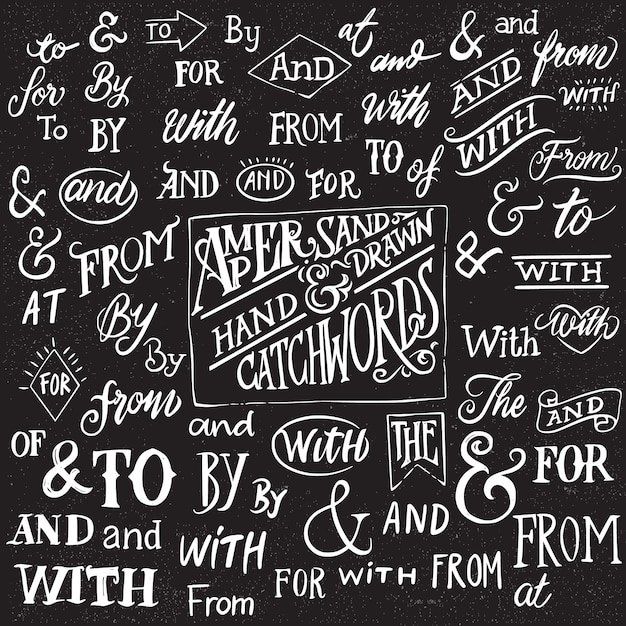 to & TO By at & and from
for By FOR AND and AND WITH
To BY with FROM with WITH From
TO of
& and AND AND FOR & to
& FROM
AMPERSAND
& HAND DRAWN
CATCHWORDS
& WITH
AT By
With with
FOR By from and The AND
OF & TO BY By with THE & FOR
AND and with & AND FROM
WITH From FOR WITH FROM at